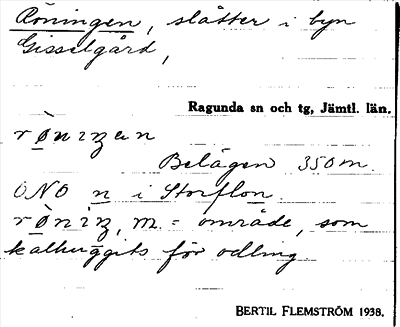 Röningen, slåtter i byn
Gisselgård,
Ragunda sn och tg, Jämtl. län.
rø̀niŋen
Belägen 350 m.
ONO n i Storflon.
rø̀nìŋ, m. = område, som
kalhuggits för odling
BERTIL FLEMSTRÖM 1938.